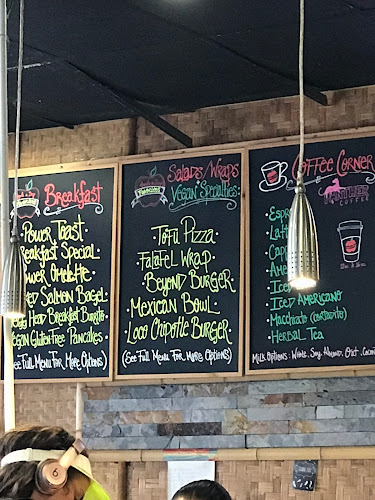 Breakfast
Power Toast
Breakfast Special
Power Omelette
Salmon Bagel
Head Breakfast Burrito
Vegan Gluten Free Pancakes
(See Full Menu For More Options)
Salads/Wraps
Vegan Specialties
Tofu Pizza
Falafel Wrap
Beyond Burger
Mexican Bowl
Loco Chipotle Burger
(See Full Menu For More Options)
Coffee Corner
Panther
Coffee
Iced Americano
Macchiato (cortadito)
Herbal Tea
Milk Options: Whole, Soy, Almond, Oat,